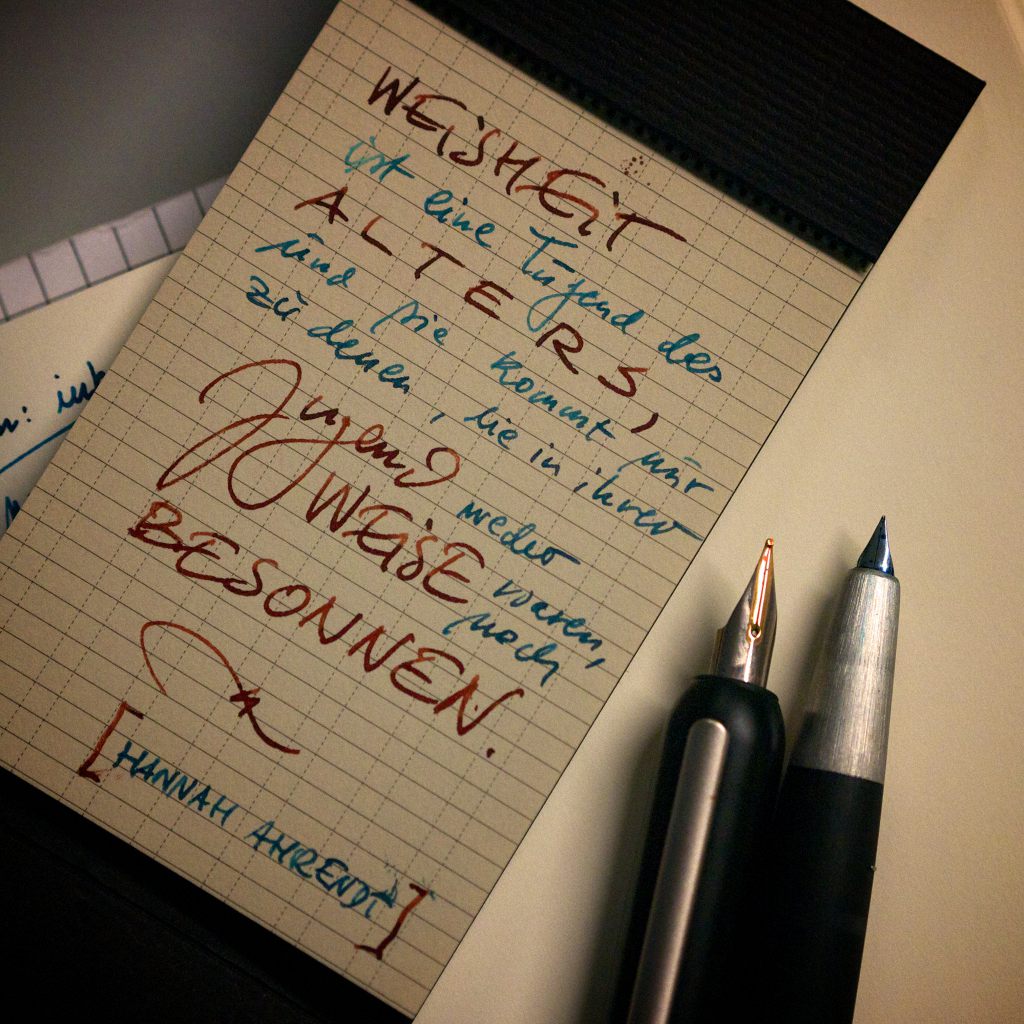 WEISHEIT
ist eine Tugend des
ALTERS,
und sie kommt nur
zu denen, die in ihrer
Jugend weder
WEISE waren,
noch
BESONNEN.
[HANNAH AHRENDT]
n: ink